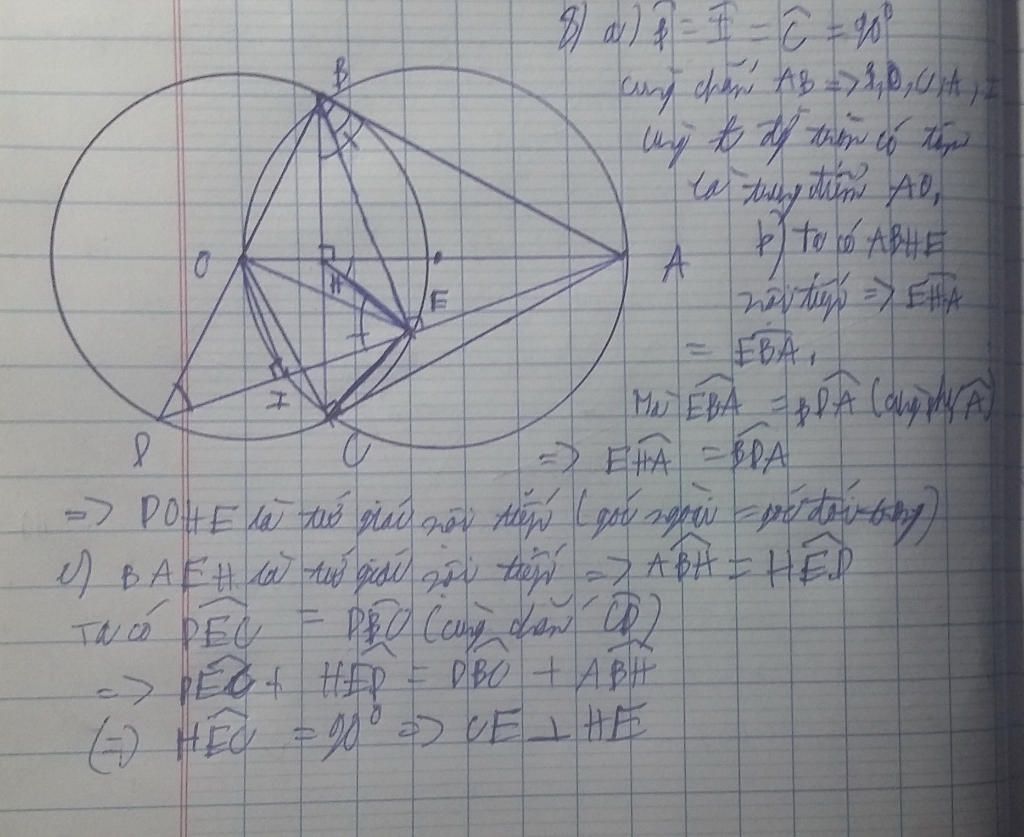 B
O
H
A
E
I
D
C
8) a) B̂ = Î = Ĉ = 90°
cùng chắn AB => B, O, C, A, I
cùng đường tròn có tâm
là trung điểm AO,
b) Ta có ABHE
nội tiếp => EĤA
= EB̂A,
Mà EB̂A = BD̂A (cùng phụ Â)
=> EĤA = BD̂A
=> DOHE là tứ giác nội tiếp (góc ngoài = góc đối trong)
c) BAEH là tứ giác nội tiếp => AB̂H = HÊD
Ta có DÊC = DB̂C (cùng chắn CD)
=> DÊC + HÊD = DB̂C + AB̂H
(=) HÊC = 90° => CE ⊥ HE